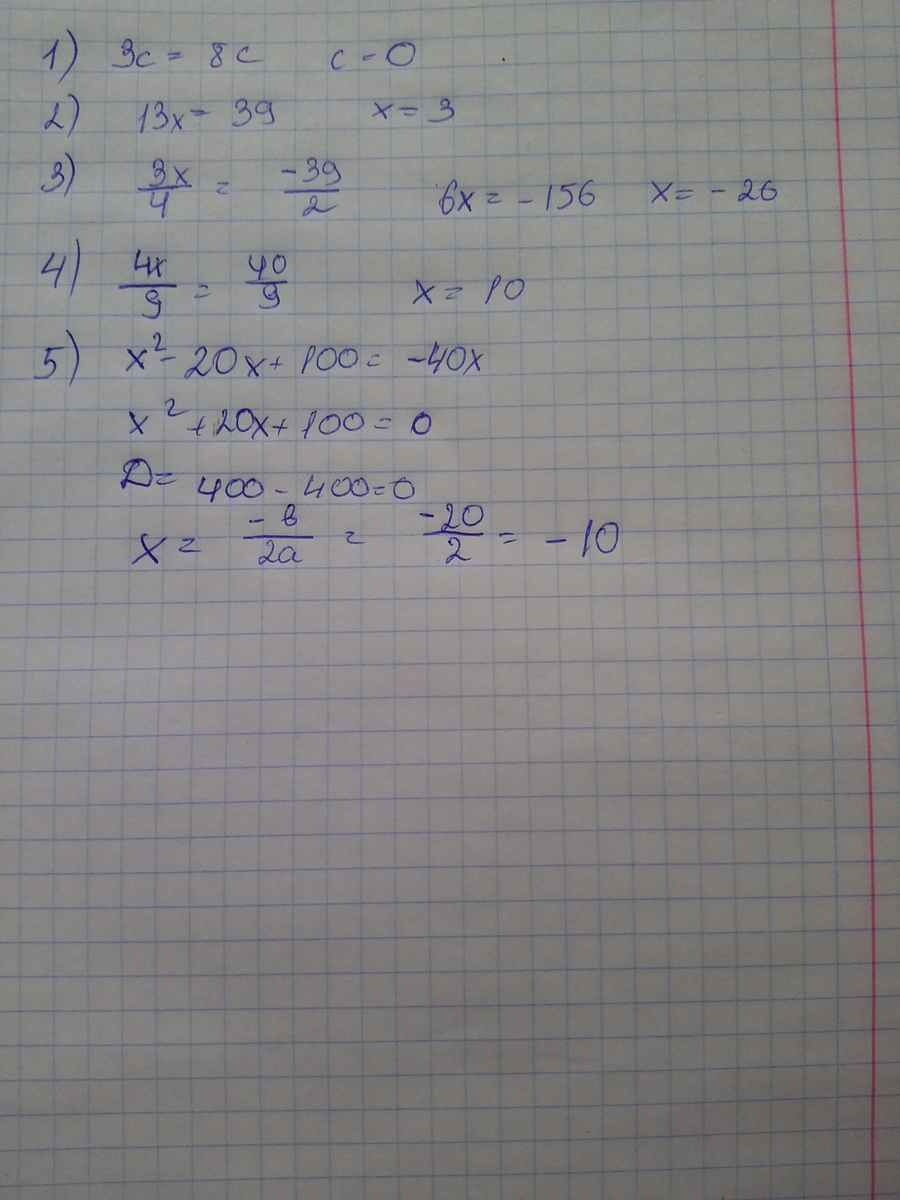 1) 3c = 8c c = 0
2) 13x = 39 x = 3
3) 3x/4 = -39/2 6x = -156 x = -26
4) 4x/9 = 40/9 x = 10
5) x² - 20x + 100 = -40x
x² + 20x + 100 = 0
D = 400 - 400 = 0
x = -в/2a = -20/2 = -10